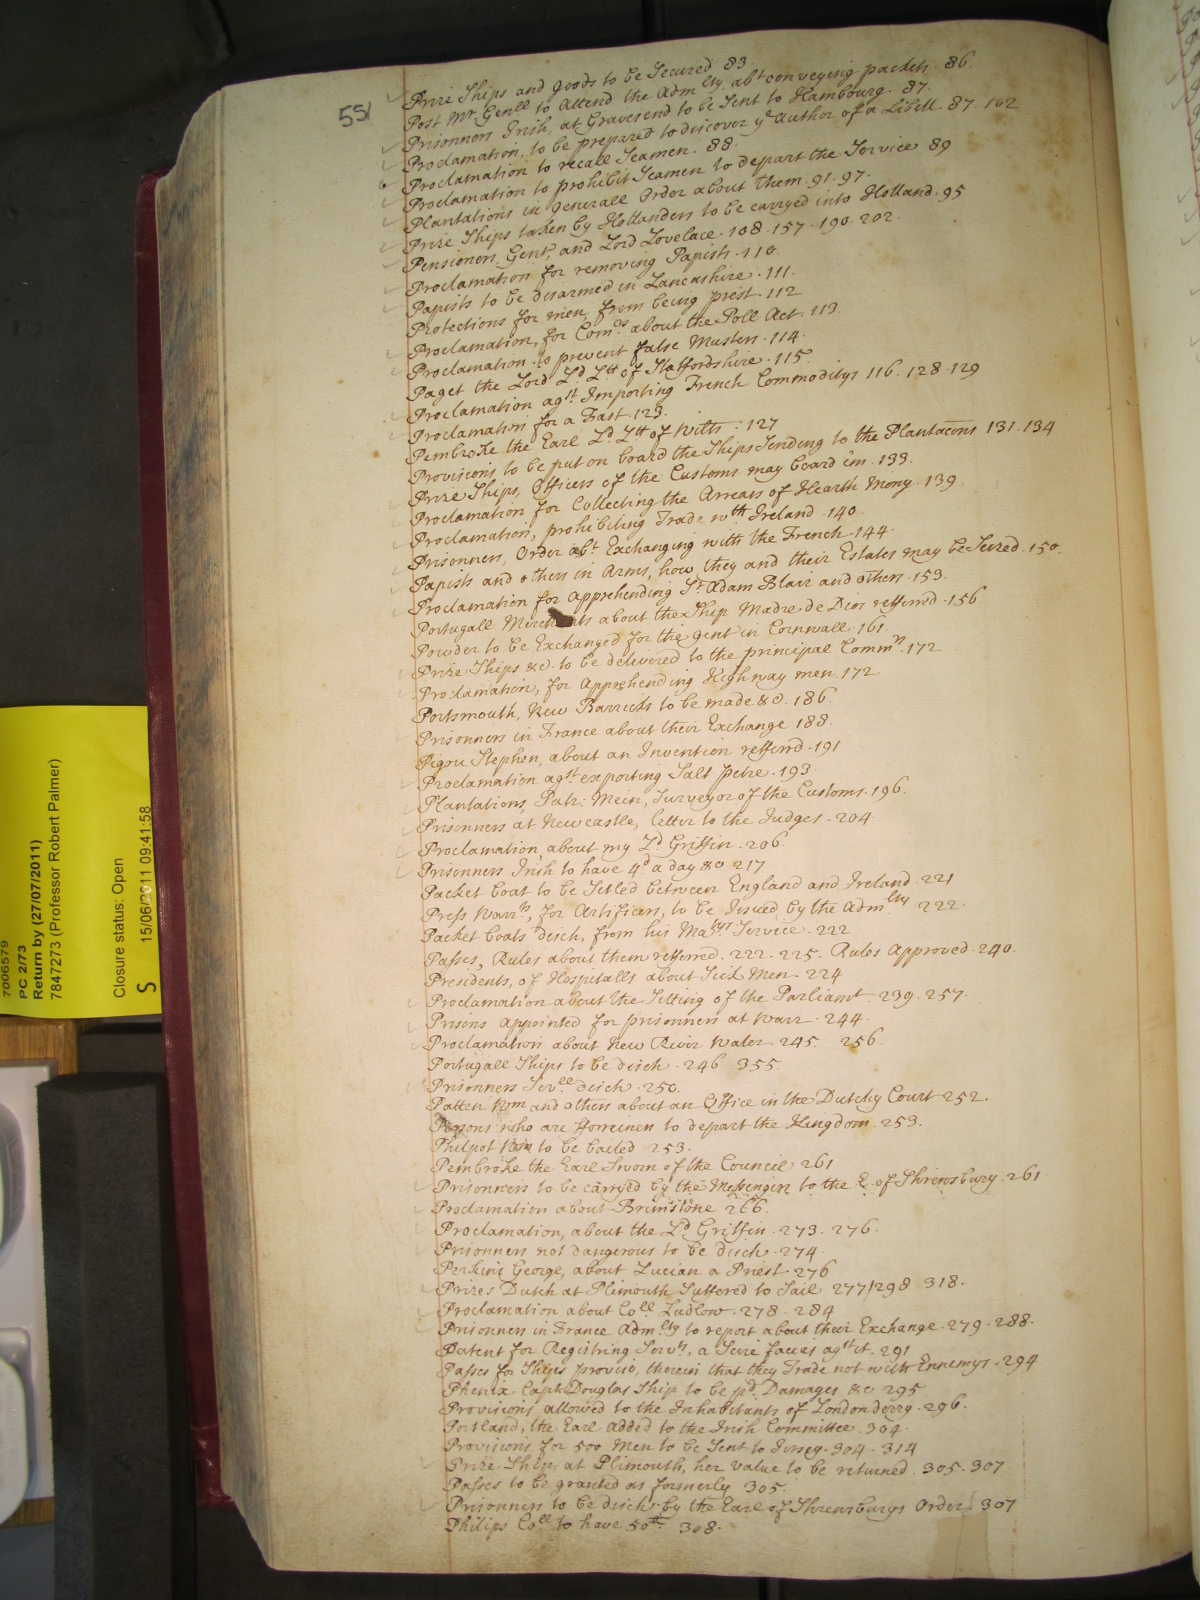 551
Prize Ships and goods to be Secured 83.
Post Mr. Genll to Attend the Admlty abt conveying packets. 86.
Prisonners Irish, at Gravesend to be Sent to Hambourg. 87.
Proclamation, to be prepared to discover ye Author of a Libell. 87. 102
Proclamation to recall Seamen. 88.
Proclamation to prohibit Seamen to depart the Service 89
Plantations in Generall Order about them. 91. 97.
Prize Ships taken by Hollanders to be carryed into Holland. 95
Pensioners Gent, and Lord Lovelace. 108. 157. 190. 202.
Proclamation for removing Papists. 110.
Papists to be disarmed in Lancashire. 111.
Protections for men, from being prest. 112
Proclamation, for Comrs about the Poll Act. 113
Proclamation to prevent false Musters. 114.
Paget the Lord Ld Ltt of Staffordshire. 115.
Proclamation agst Importing French Commoditys 116. 128. 129
Proclamation for a Fast 123.
Pembroke the Earl Ld Ltt of Wilts. 127
Provisions to be put on board the Ships Sending to the Plantacons 131. 134
Prize Ships, Officers of the Customs may board em. 133.
Proclamation for Collecting the Arrears of Hearth Mony. 139
Proclamation, prohibiting Trade wth Ireland. 140.
Prisonners, Order abt Exchanging with the French. 144.
Papists and others in Arms, how they and their Estates may be Seized. 150.
Proclamation for apprehending Sr Adam Blair and others. 153.
Portugall Merchants about the Ship Madre de Dios refferred. 156
Powder to be Exchanged for the gent in Cornwall. 161.
Prize Ships &c. to be delivered to the principal Commrs. 172
Proclamation, for apprehending Highway men. 172
Portsmouth, New Barricks to be made &c. 186.
Prisonners in France about their Exchange 188.
Pigou Stephen, about an Invention refferrd. 191
Proclamation agst exporting Salt petre. 193.
Plantations, Patr: Mein, Surveyor of the Customs. 196.
Prisonners at Newcastle, letter to the Judges. 204.
Proclamation, about my Ld Griffin. 206.
Prisonners Irish to have 4d a day &c 217
Packet boat to be Setled between England and Ireland. 221
Press Warrts, for Artificers, to be Issued by the Admlty 222.
Packet boats disch, from his Matys Service. 222
Passes, Rules about them refferred. 222. 225. Rules Approved. 240.
Presidents, of Hospitalls about Sick Men. 224
Proclamation about the Sitting of the Parliamt. 239. 257.
Prisons appointed for prisonners at Warr. 244.
Proclamation about New River Water. 245. 256.
Portugall Ships to be disch. 246 355.
Prisonners Sevll disch. 250.
Patten Wm and others about an Office in the Dutchy Court 252.
Persons who are fforreiners to depart the Kingdom. 253.
Philpot Wm to be bailed 253.
Pembroke the Earl Sworn of the Council 261
Prisonners to be carryed by the Messengers to the E. of Shrewsbury. 261
Proclamation about Brimstone 266.
Proclamation, about the Ld Griffin. 273. 276.
Prisonners not dangerous to be disch. 274.
Perkins George, about Lucian a Priest. 276
Prizes Dutch at Plimouth Suffered to Sail 277/298 318.
Proclamation about Coll Ludlow. 278. 284
Prisonners in France Admlty to report about their Exchange. 279. 288.
Patent for Registring Servts, a Scire facias agst it. 291
Passes for Ships proviso, therein that they Trade not with Ennemys. 294
Phenix Capt Douglas Ship to be pd Damages &c 295
Provisions allowed to the Inhabitants of Londonderry. 296.
Portland, the Earl Added to the Irish Committee. 304.
Provisions for 500 Men to be Sent to Jersey. 304. 314
Prize Ship, at Plimouth, her value to be returned. 305. 307
Passes to be granted as formerly 305.
Prisonners to be disch: by the Earl of Shrewsburys Order. 307
Philips Coll to have 50th. 308.
7006579
PC 2/73
Return by (27/07/2011)
7847273 (Professor Robert Palmer)
Closure status: Open
S 15/06/2011 09:41:58